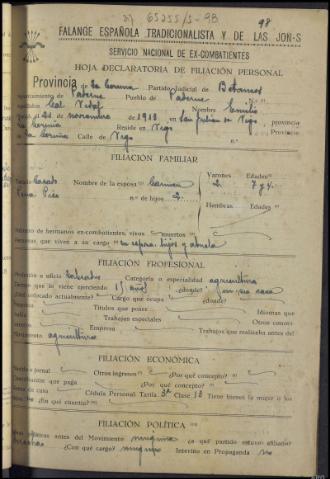 98
FALANGE ESPAÑOLA TRADICIONALISTA Y DE LAS JON-S
SERVICIO NACIONAL DE EX-COMBATIENTES
HOJA DECLARATORIA DE FILIACIÓN PERSONAL
Provincia de La Coruña Partido Judicial de Betanzos
de Paderne Pueblo de Paderne
Nombre Emilio
de noviembre de 1910 en San Julian de Vigo provincia
Coruña Reside en Vigo Provincia
La Coruña Calle de Vigo
FILIACIÓN FAMILIAR
casado Nombre de la esposa Carmen
Varones Edades
2 7 y 4
n.º de hijos 2
Hembras Edades
de hermanos ex-combatientes, vivos muertos
que viven a su cargo su esposa hijos y abuela
FILIACIÓN PROFESIONAL
o oficio labrador Categoría o especialidad agricultura
que lo viene ejerciendo 15 años ¿dónde? en su casa
colocado actualmente? Cargo que ocupa ¿dónde?
Títulos que posee Idiomas que
Trabajos especiales Otros conoci-
Empresa Trabajos que realizaba antes del
agricultura
FILIACIÓN ECONÓMICA
jornal Otros ingresos ¿Por qué concepto?
que paga ¿Por qué concepto?
de casa Cédula Personal Tarifa 3ª Clase 13 Tiene bienes la mujer o los
¿En qué cuantía?
FILIACIÓN POLÍTICA
antes del Movimiento ninguna ¿a qué partido estuvo afiliado?
¿Con qué cargo? ninguno Intervino en Propaganda no